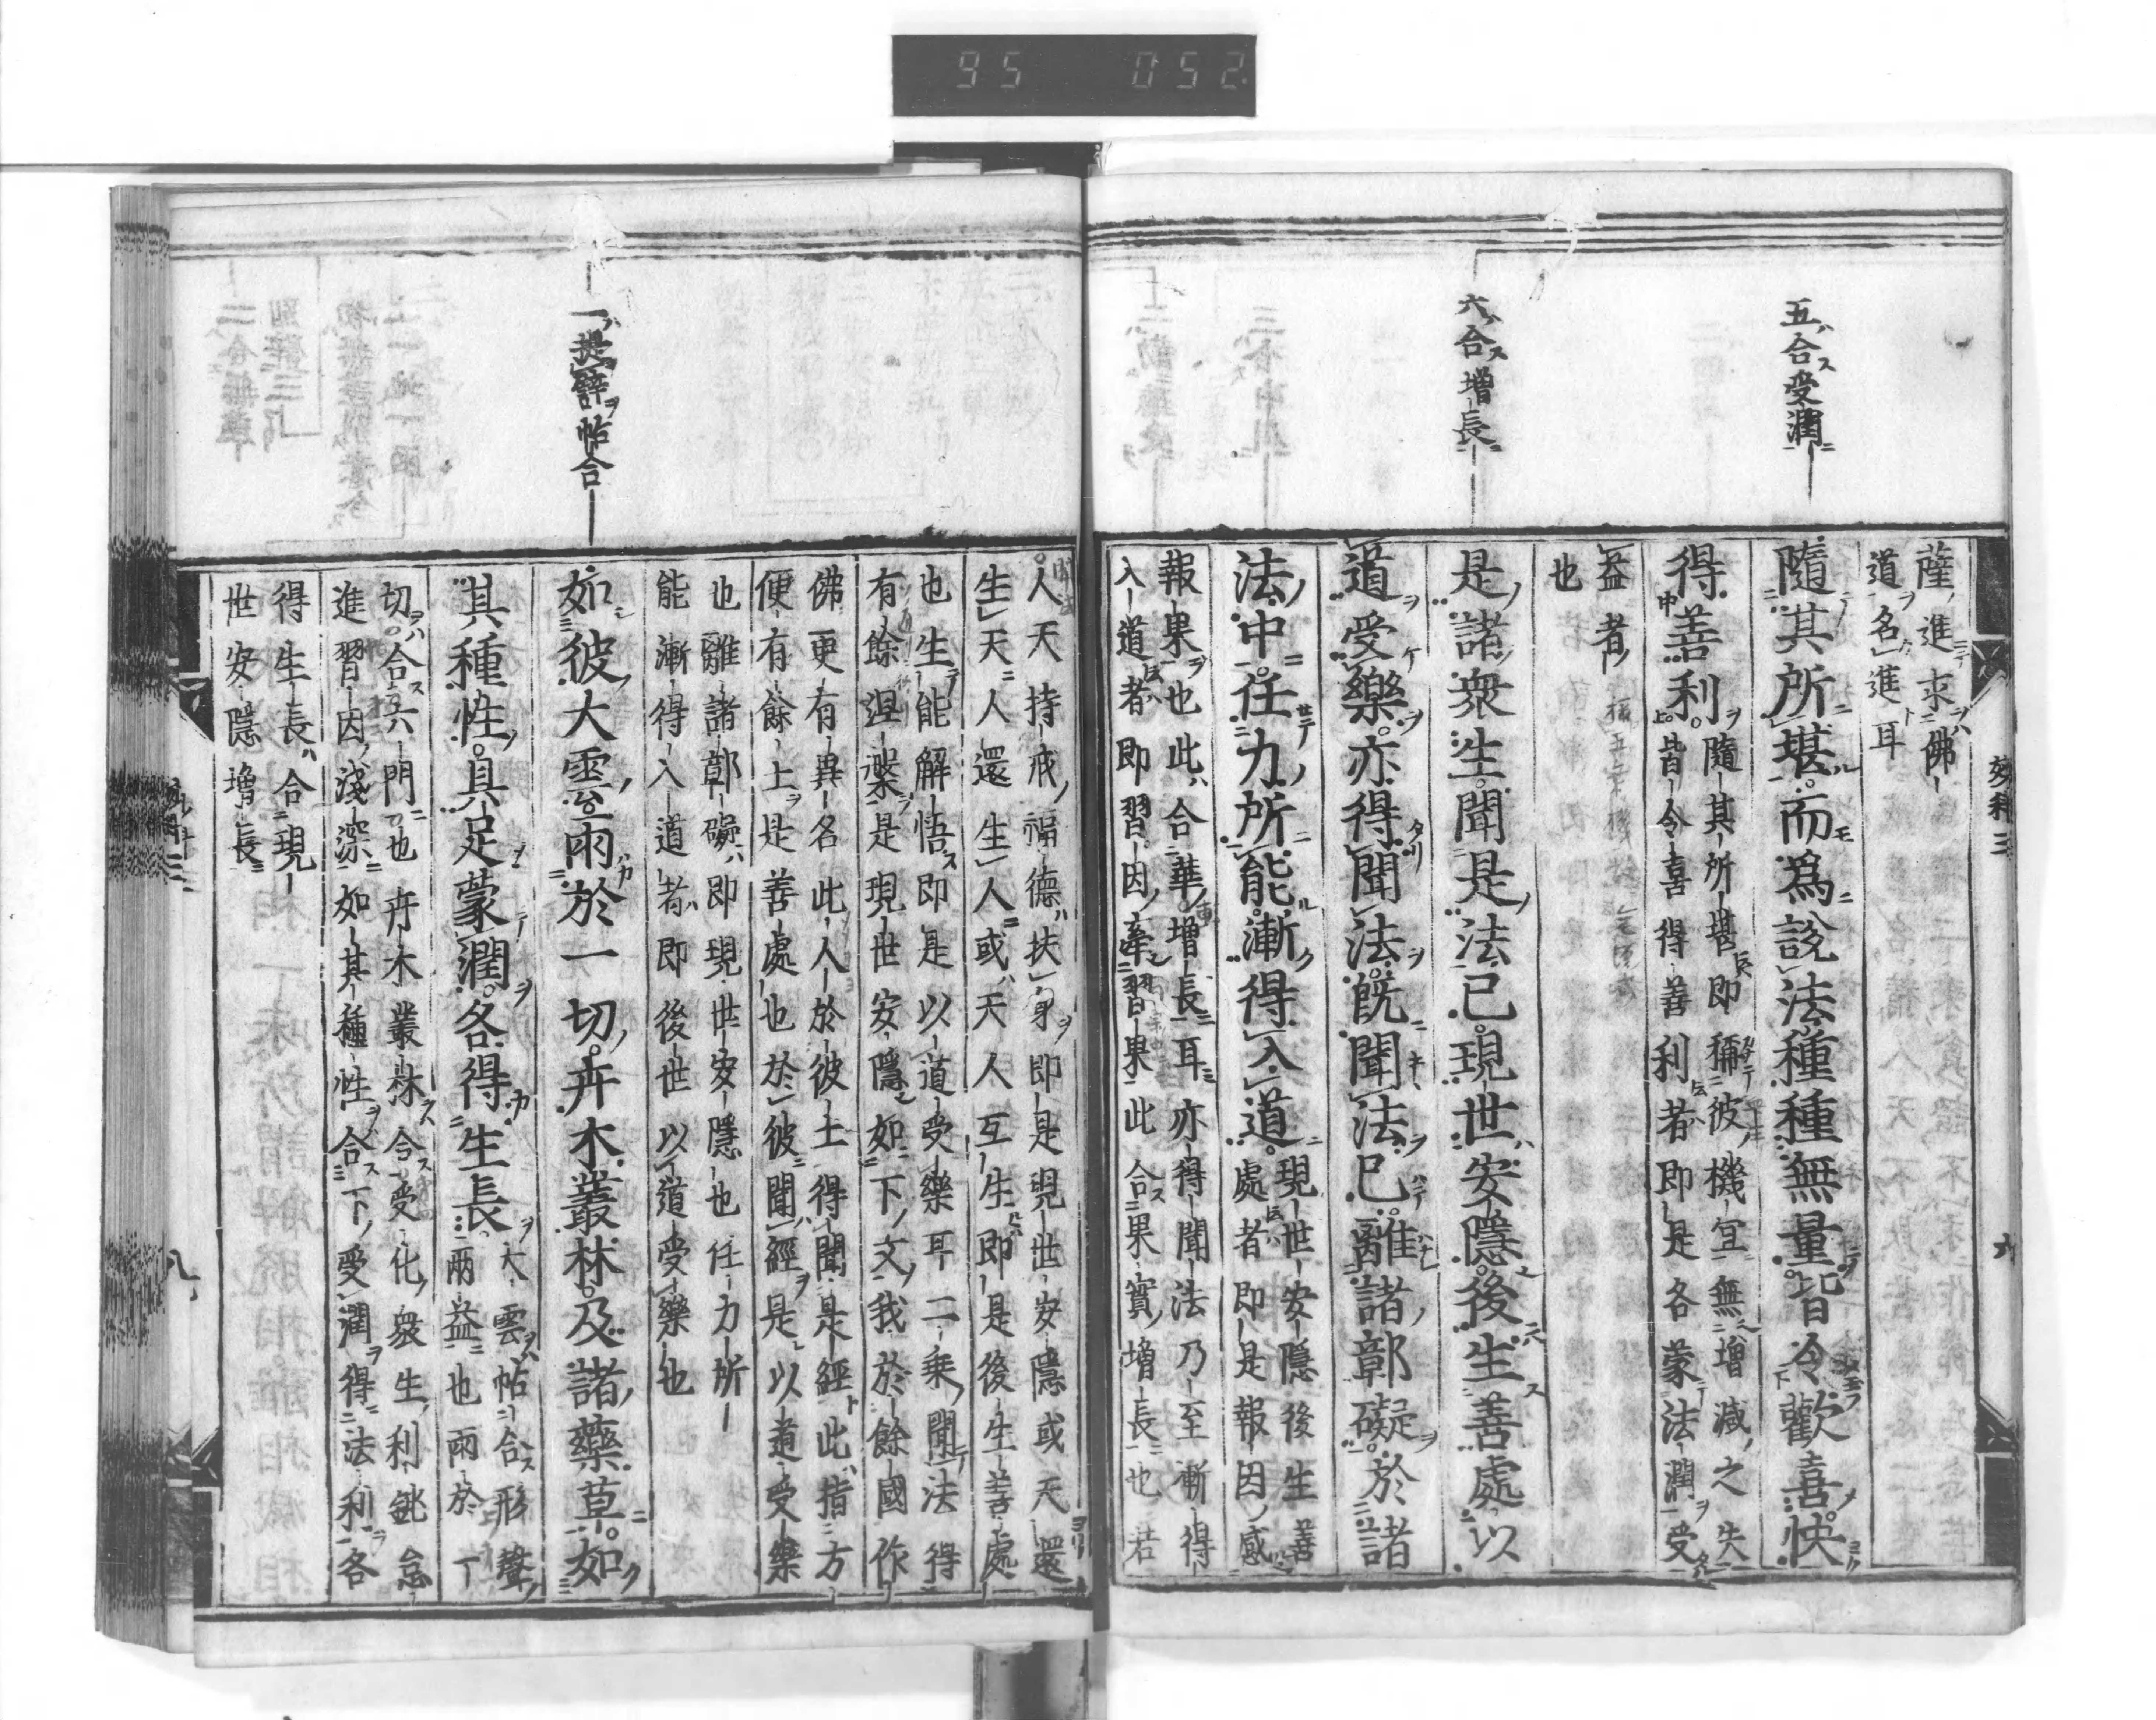 95 052
五合受潤
六合增長
薩進求佛
道名進耳
隨其所堪而為說法種種無量皆令歡喜快
得善利
隨其所堪即稱彼機宜無增減之失
皆令喜得善利者即是各蒙法潤受
益者
也
是諸衆生聞是法已現世安隱後生善處以
道受樂亦得聞法既聞法已離諸鄣礙於諸
法中任力所能漸得入道
現世安隱後生善
處者即是報因感
報果也此合華增長耳亦得聞法乃至漸得
入道者即習因牽習果此合果實增長也若
妙科三
六
一提譬帖合
人天持戒福德扶身即是現世安隱或天還
生天人還生人或天人互生即是後生善處
也生能解悟即是以道受樂耳二乘聞法得
有餘涅槃是現世安隱如下文我於餘國作
佛更有異名此人於彼土得聞是經此指方
便有餘土是善處也於彼聞經是以道受樂
也離諸鄣礙即現世安隱也任力所
能漸得入道者即後世以道受樂也
如彼大雲雨於一切卉木叢林及諸藥草如
其種性具足蒙潤各得生長
大雲帖合形聲
雨益也雨於一
切合六門也卉木叢林合受化衆生利鈍怠
進習因淺深如其種性合下受潤得法利各
得生長合現
世安隱增長